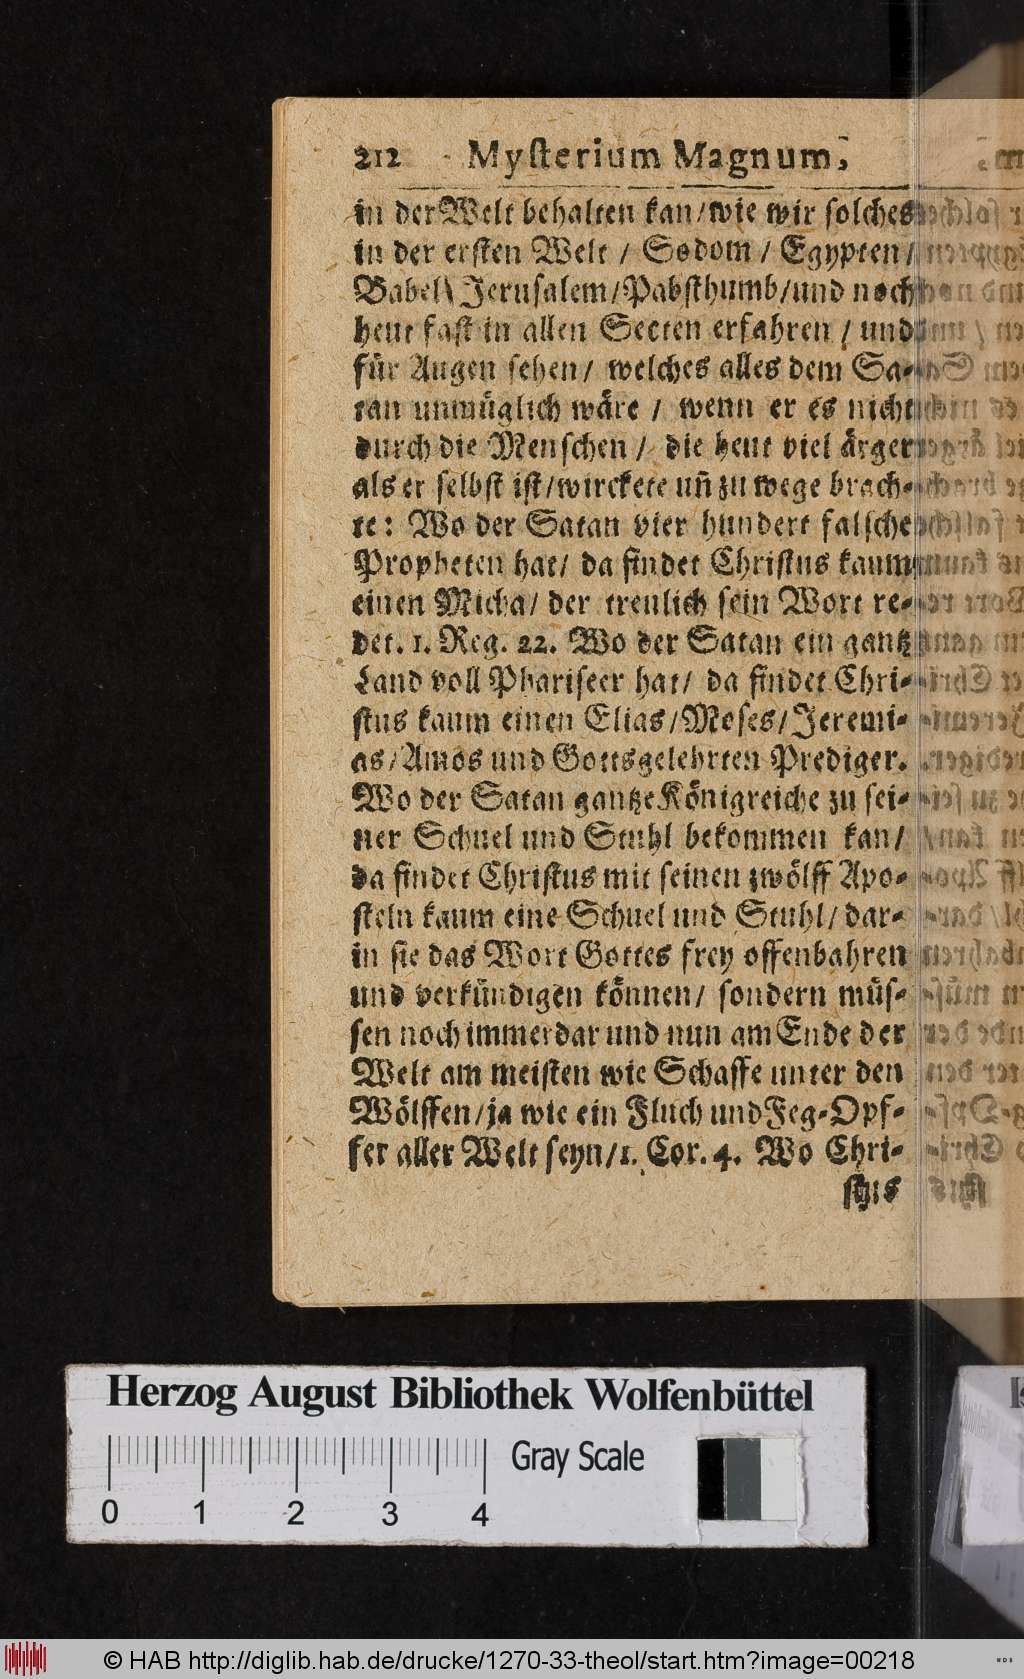 212 Mysterium Magnum,
in der Welt behalten kan/wie wir solches
in der ersten Welt / Sodom / Egypten/
Babel/ Jerusalem/Pabsthumb/und noch
heut fast in allen Secten erfahren / und
für Augen sehen/ welches alles dem Sa-
tan unmüglich wäre / wenn er es nicht
durch die Menschen / die heut viel ärger
als er selbst ist/wirckete uñ zu wege brach-
te: Wo der Satan vier hundert falsche
Propheten hat/ da findet Christus kaum
einen Micha/ der treulich sein Wort re-
det. 1. Reg. 22. Wo der Satan ein gantz
Land voll Phariseer hat/ da findet Chri-
stus kaum einen Elias/Moses/Jeremi-
as/Amos und Gottsgelehrten Prediger.
Wo der Satan gantze Königreiche zu sei-
ner Schuel und Stuhl bekommen kan/
da findet Christus mit seinen zwölff Apo-
steln kaum eine Schuel und Stuhl/ dar-
in sie das Wort Gottes frey offenbahren
und verkündigen können/ sondern müs-
sen noch immerdar und nun am Ende der
Welt am meisten wie Schaffe unter den
Wölffen/ja wie ein Fluch und Feg-Opf-
fer aller Welt seyn/1. Cor. 4. Wo Chri-
stus
Herzog August Bibliothek Wolfenbüttel
Gray Scale
0 1 2 3 4
© HAB http://diglib.hab.de/drucke/1270-33-theol/start.htm?image=00218